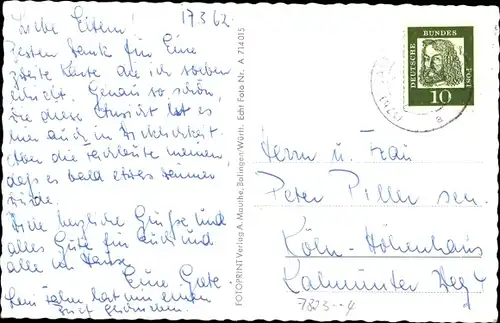 17.3.62.
Liebe Eltern!
Besten Dank für Eure
zweite Karte die ich soeben
erhielt. Genau so schön,
wie diese Aussicht ist es
hier auch in Wirklichkeit.
Aber die Fachleute meinen,
daß es bald etwas wärmer
würde.
Viele herzliche Grüße und
alles Gute für Euch und
alle zu Hause
Eure Grete.
hat uns einen
FOTOPRINT Verlag A. Mauthe, Balingen/Württ. Echt Foto Nr. A 714015
DEUTSCHE BUNDESPOST
10
Herrn u. Frau
Peter Piller sen.
Köln-Höhenhaus
Kalmünter Weg 4
7823--4